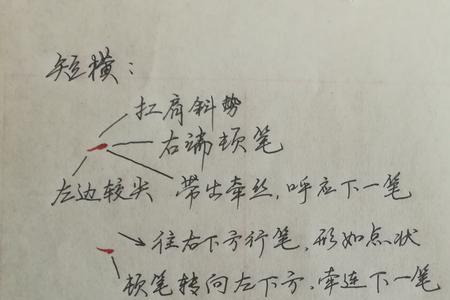 短横：
扛肩斜势
右端顿笔
左边较尖
带出牵丝，呼应下一笔
往右下方行笔，形如点状
顿笔转向左下方，牵连下一笔